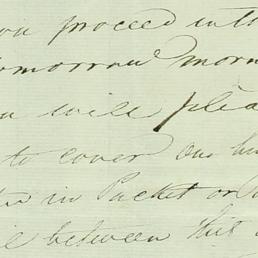 you proceed into
tomorrow morn
you will plea
to cover one hun
in Packet or
between this